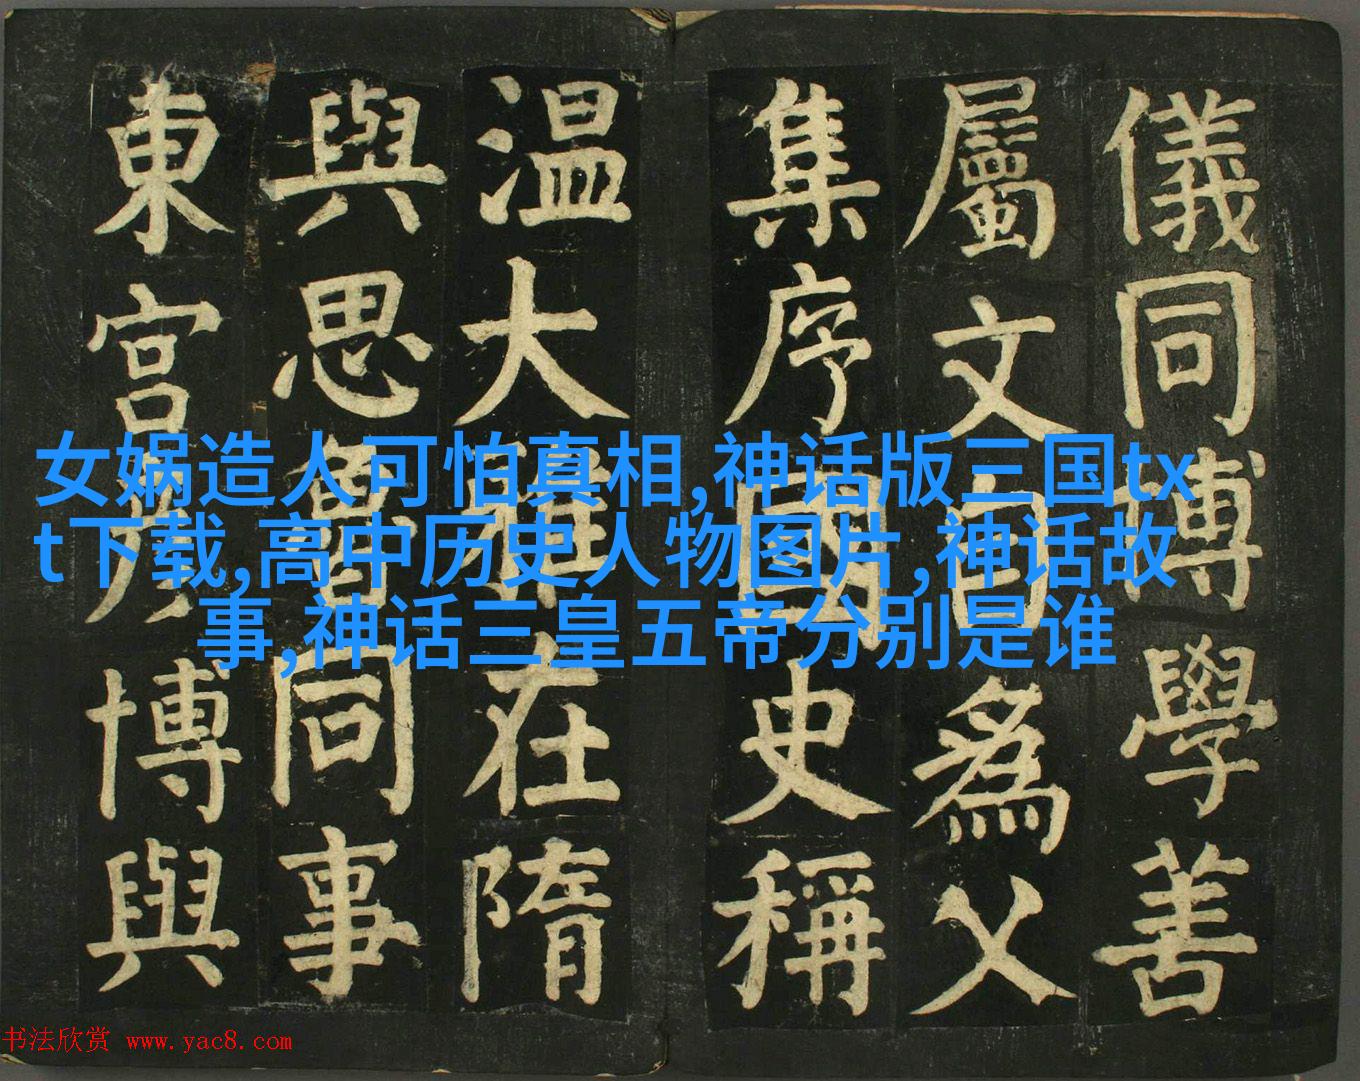 儀同博學善
屬文自為父
集序國史稱
温大雅在隋
與思魯同事
東宮彦博與
女娲造人可怕真相,神话版三国tx
t下载,高中历史人物图片,神话故
事,神话三皇五帝分别是谁
书法欣赏 www.yac8.com